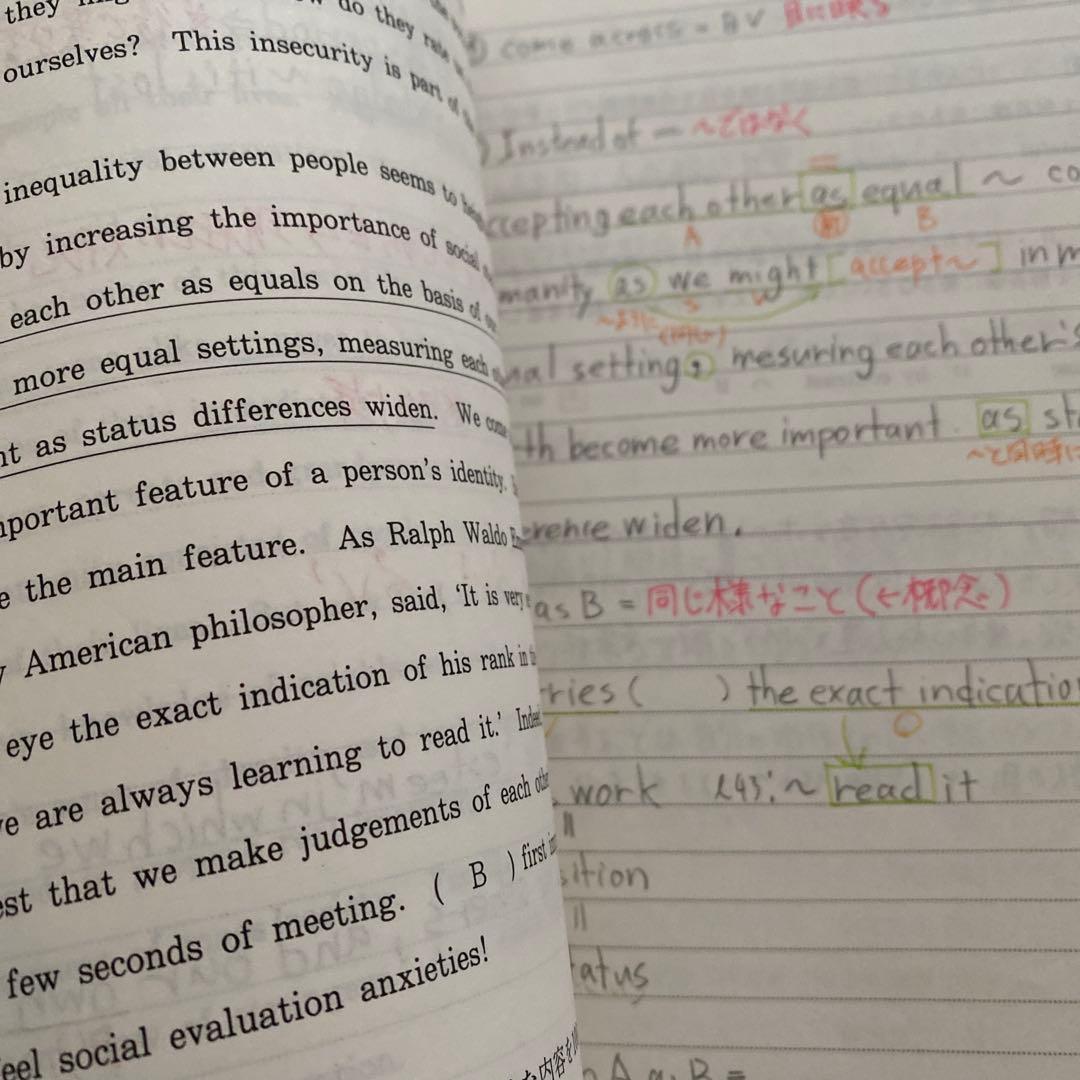 they
do they rate
ourselves? This insecurity is part of
inequality between people seems to
by increasing the importance of social
each other as equals on the basis of
more equal settings, measuring each
as status differences widen. We come
feature of a person's identity.
the main feature. As Ralph Waldo
American philosopher, said, 'It is very
eye the exact indication of his rank in
are always learning to read it.'
that we make judgements of each
few seconds of meeting. ( B ) first
social evaluation anxieties!
内容を
come across =
Instead of — ~ではなく
each other as equal ~
A B
as we might [accept~] in
S V
setting, mesuring each other's
become more important. as
~と同時に
widen.
as B = 同じ様なこと (←概念)
( ) the exact indication
O
work ~ read it
||
||
A as B =